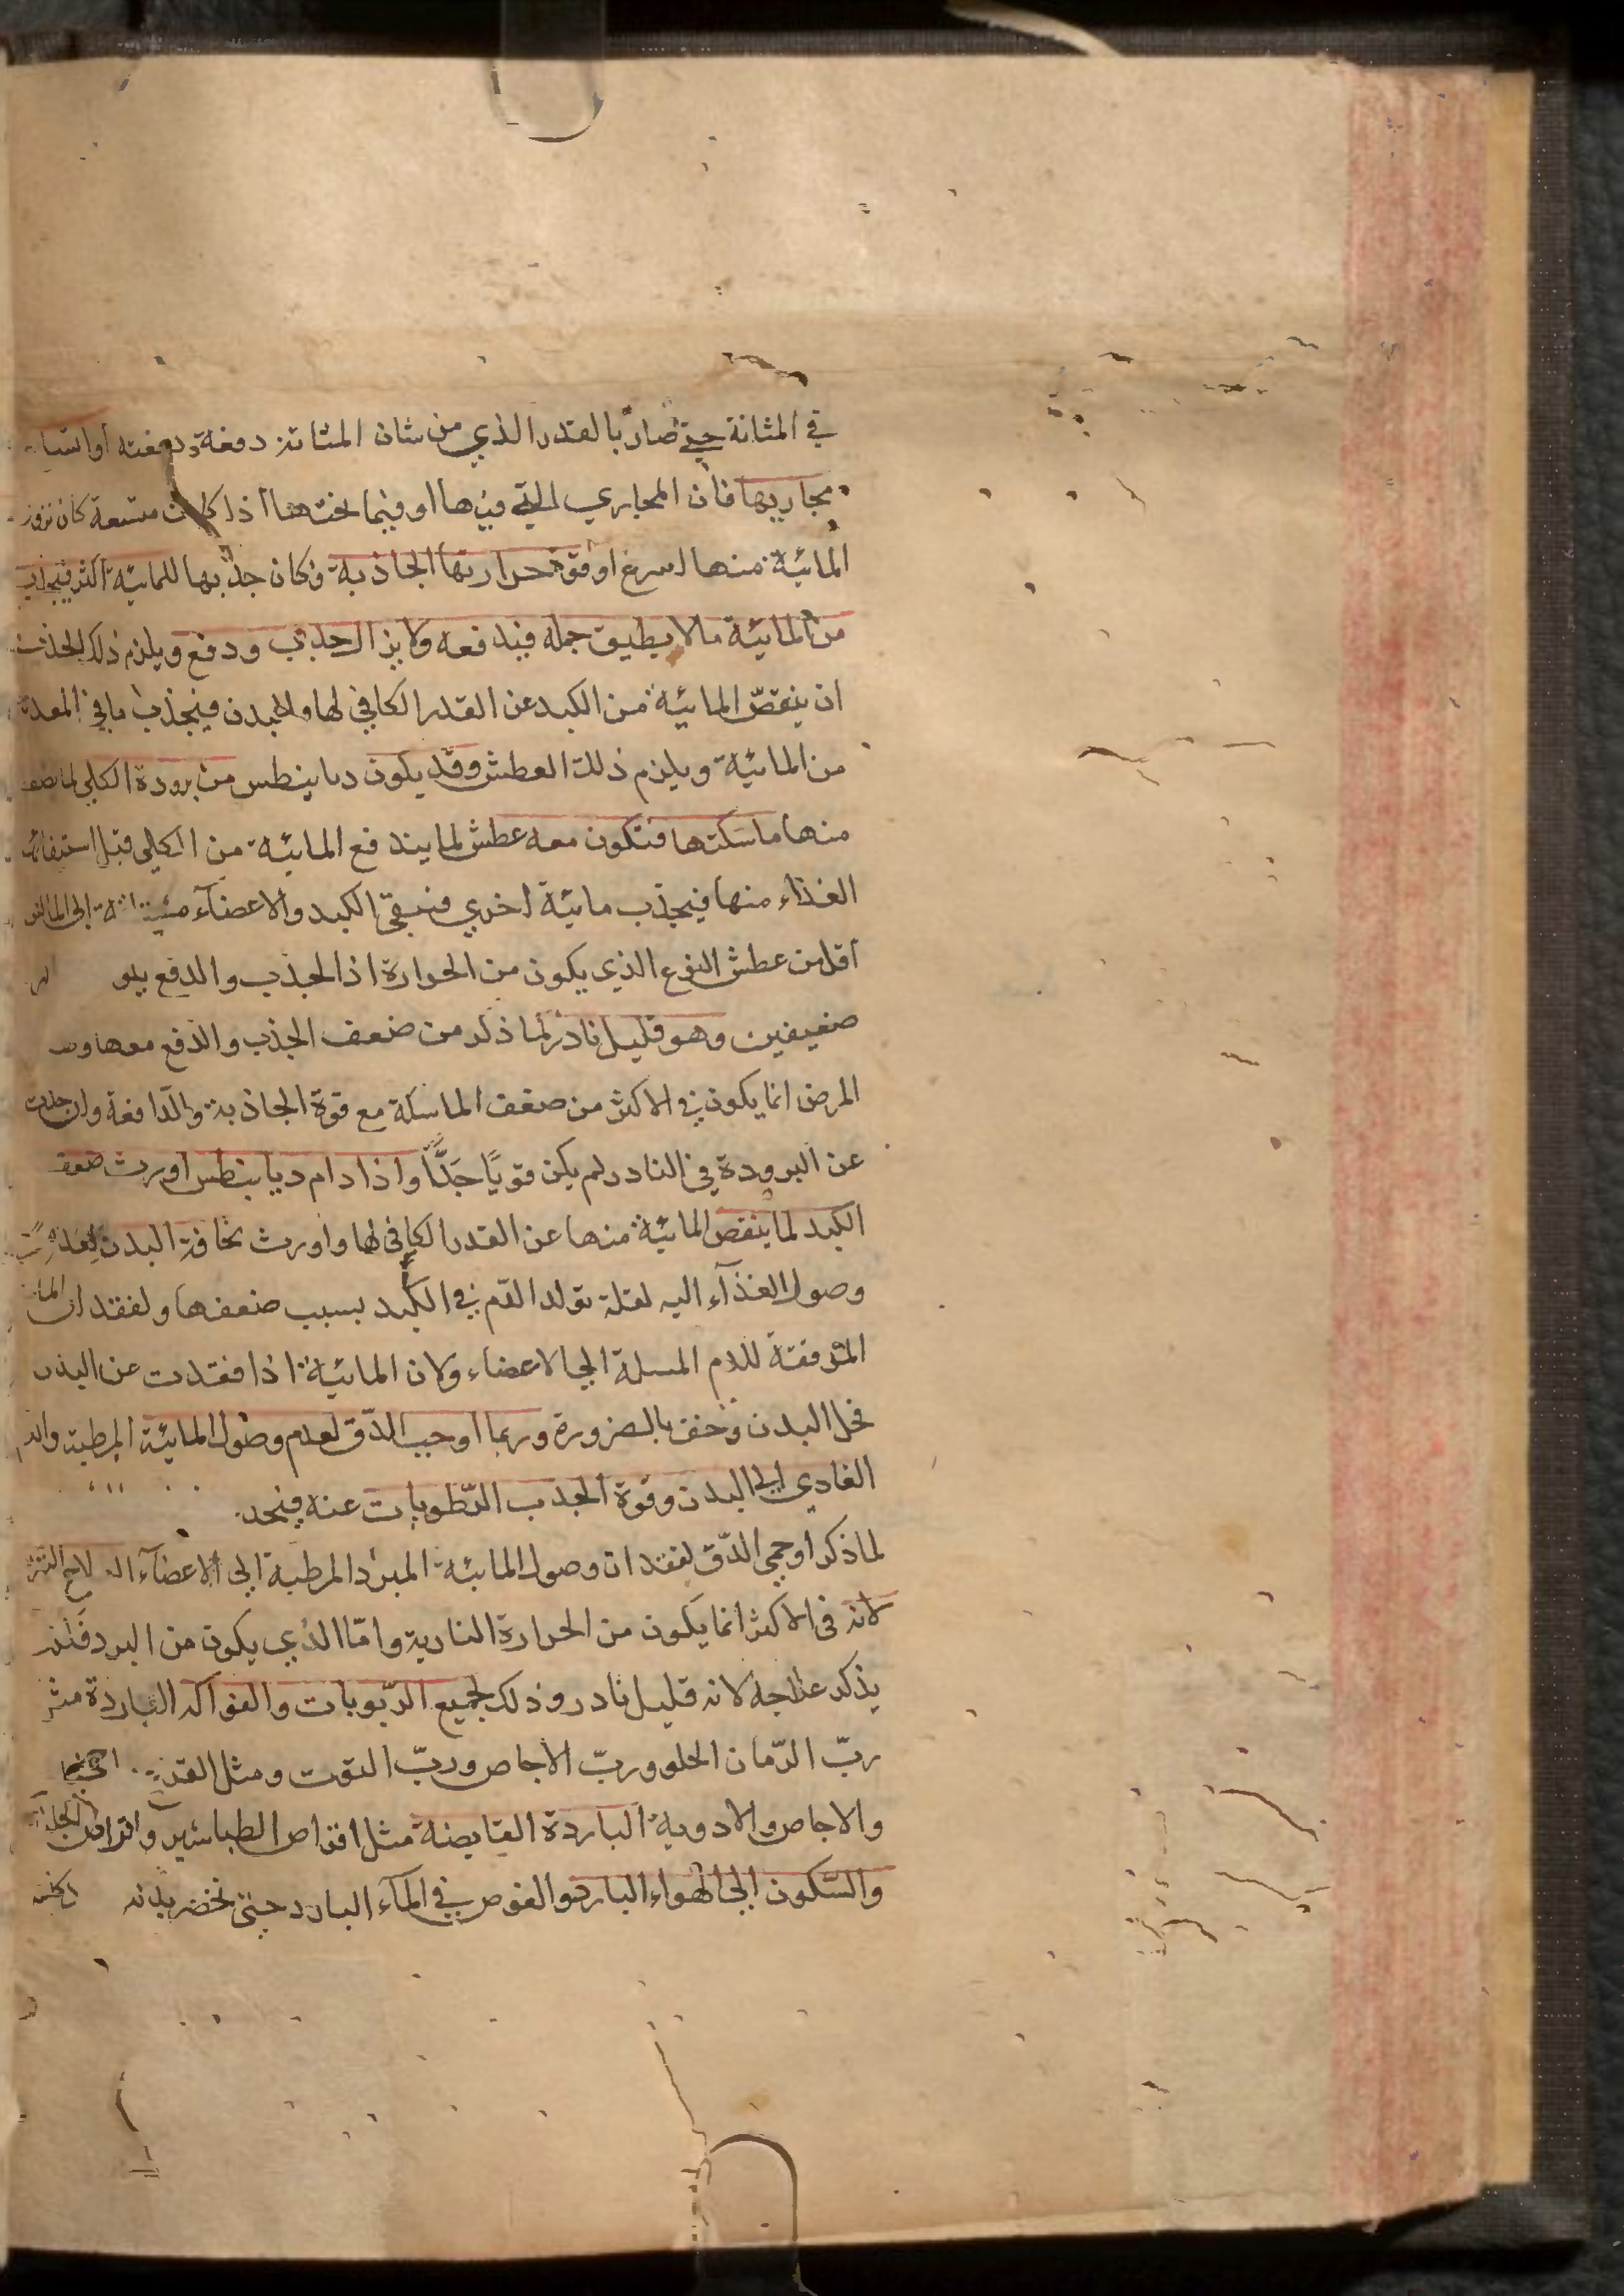 في المثانة حتى صار بالقدر الذي من شان المثانة دفعه دفعته او اتساع
مجاريها فان المجاري التي فيها او فيما تحتها اذا كانت متسعة كان نزول
المائية منها اسرع او قوة حرارتها الجاذبة فكان جذبها للمائية اكثر فيجذب
من المائية ما لا يطيق حمله فيدفعه ولا يزال جذب ودفع ويلزم ذلك الجذب
ان ينقص المائية من الكبد عن القدر الكافي لها وللبدن فينجذب ما في المعدة
من المائية ويلزم ذلك العطش وقد يكون ديابيطس من برودة الكلى لما ضعف
منها ماسكتها فتكون معه عطش لما يندفع المائية من الكلى قبل استيفائه
الغذاء منها فيجذب مائية اخري فتبقى الكبد والاعضآء الى المائية
اقل من عطش النوع الذي يكون من الحرارة اذ الجذب والدفع
ضعيفين وهو قليل نادر لما ذكر من ضعف الجذب والدفع معها
المرض انما يكون في الاكثر من ضعف الماسكة مع قوة الجاذبة والدافعة وان حدث
عن البرودة في النادر لم يكن قويًا جدًّا واذا دام ديابنطس اورث ضعف
الكبد لما ينقص المائية منها عن القدر الكافي لها واورث نحافة البدن
وصول الغذآء اليه لقلة تولد الدم في الكبد بسبب ضعفها ولفقدان المائية
المرققة للدم المسلة الى الاعضاء ولان المائية اذا فقدت عن البدن
نحل البدن وجف بالضرورة وربما اوجب الدق لعدم وصول المائية المرطبة والدم
الغادي الى البدن وقوة الجذب الرطوبات عنه
لما ذكر او حمى الدق لفقدان وصول المائية المبرد المرطبة الى الاعضآء العلاج
لانه في الاكثر انما يكون من الحرارة النارية واما الذي يكون من البرد فلم
يذكر علاجه لانه قليل نادر وذلك لجميع الربوبات والفواكه الباردة مثل
ربّ الرّمان الحلو وربّ الاجاص وربّ التوت ومثل
والاجاص والادوية الباردة القابضة مثل اقراص الطباشير واقراص الجلنار
والسّكون الى الهواء البارد والغوص في المآء البارد حتى تخضر بدنه